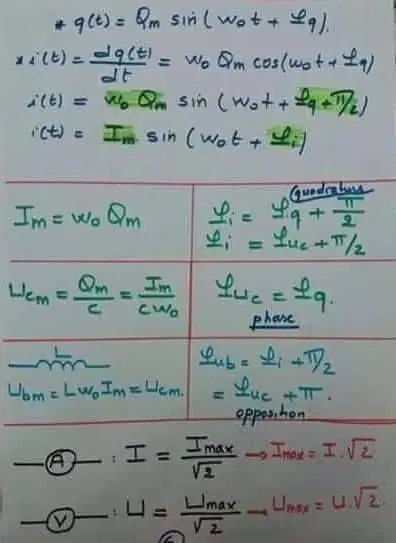 * q(t) = Qm sin(w₀t + φq).
* i(t) = dq(t)/dt = w₀ Qm cos(w₀t + φq)
i(t) = w₀ Qm sin (w₀t + φq + π/2)
i(t) = Im sin (w₀t + φi)
Im = w₀ Qm
quadrature
φi = φq + π/2
φi = φuc + π/2
Ucm = Qm/c = Im/cw₀
φuc = φq.
phase
L
Ubm = Lw₀Im = Ucm.
φub = φi + π/2
= φuc + π.
opposition
A : I = Imax/√2 → Imax = I.√2
V : U = Umax/√2 → Umax = U.√2